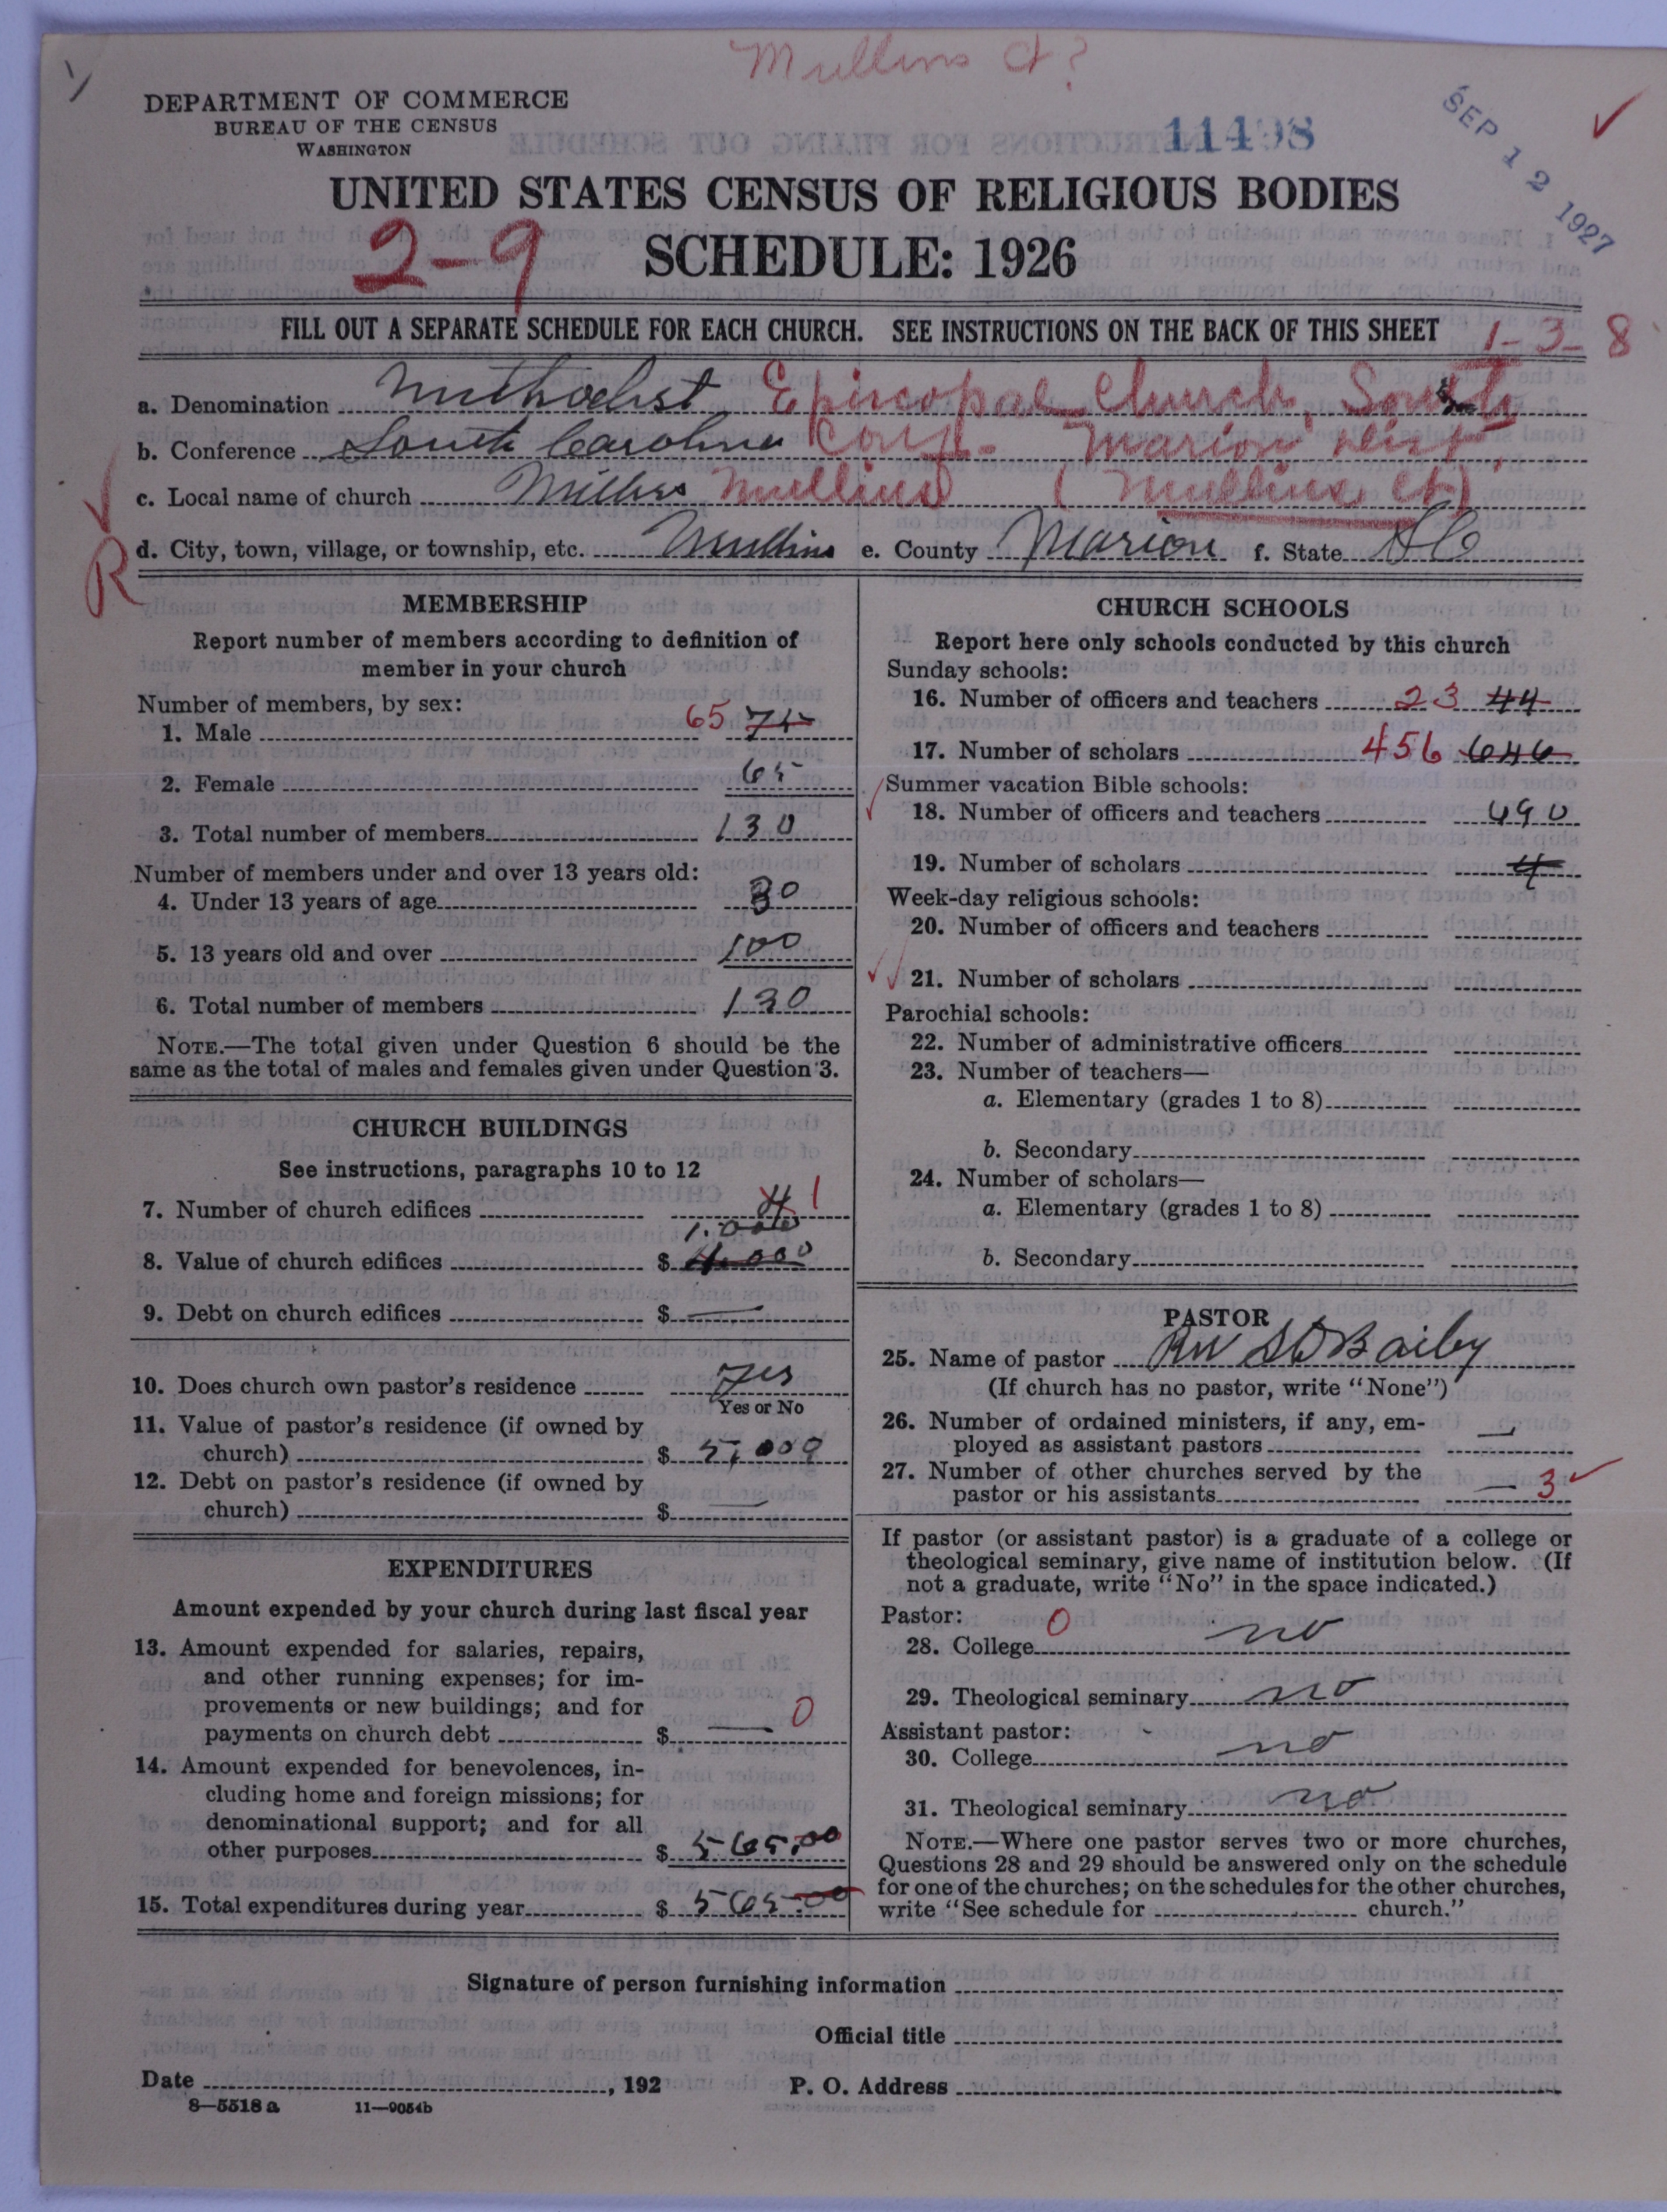 Mullins Ct?
DEPARTMENT OF COMMERCE
BUREAU OF THE CENSUS
WASHINGTON
11498
SEP 12 1927
UNITED STATES CENSUS OF RELIGIOUS BODIES
2-9
SCHEDULE: 1926
FILL OUT A SEPARATE SCHEDULE FOR EACH CHURCH. SEE INSTRUCTIONS ON THE BACK OF THIS SHEET
1-3-8
a. Denomination Methodist Episcopal Church, South
b. Conference South Carolina Conf- Marion Dist.
c. Local name of church Mullins (Mullins Ct)
R
d. City, town, village, or township, etc. Mullins e. County Marion f. State SC
MEMBERSHIP
Report number of members according to definition of
member in your church
Number of members, by sex:
1. Male 65 75
2. Female 65
3. Total number of members 130
Number of members under and over 13 years old:
4. Under 13 years of age 30
5. 13 years old and over 100
6. Total number of members 130
NOTE.—The total given under Question 6 should be the
same as the total of males and females given under Question 3.
CHURCH BUILDINGS
See instructions, paragraphs 10 to 12
7. Number of church edifices 4 1
1.000
8. Value of church edifices $ 4.000
9. Debt on church edifices $ —
10. Does church own pastor's residence yes
Yes or No
11. Value of pastor's residence (if owned by
church) $ 5,000
12. Debt on pastor's residence (if owned by
church) $ —
EXPENDITURES
Amount expended by your church during last fiscal year
13. Amount expended for salaries, repairs,
and other running expenses; for im-
provements or new buildings; and for
payments on church debt $ — 0
14. Amount expended for benevolences, in-
cluding home and foreign missions; for
denominational support; and for all
other purposes $ 565.00
15. Total expenditures during year $ 565.00
CHURCH SCHOOLS
Report here only schools conducted by this church
Sunday schools:
16. Number of officers and teachers 23 44
17. Number of scholars 456 646
Summer vacation Bible schools:
18. Number of officers and teachers 490
19. Number of scholars 4
Week-day religious schools:
20. Number of officers and teachers
21. Number of scholars
Parochial schools:
22. Number of administrative officers
23. Number of teachers—
a. Elementary (grades 1 to 8)
b. Secondary
24. Number of scholars—
a. Elementary (grades 1 to 8)
b. Secondary
PASTOR
25. Name of pastor Rev S D Bailey
(If church has no pastor, write "None")
26. Number of ordained ministers, if any, em-
ployed as assistant pastors —
27. Number of other churches served by the
pastor or his assistants — 3
If pastor (or assistant pastor) is a graduate of a college or
theological seminary, give name of institution below. (If
not a graduate, write "No" in the space indicated.)
Pastor:
28. College 0 no
29. Theological seminary no
Assistant pastor:
30. College no
31. Theological seminary no
NOTE.—Where one pastor serves two or more churches,
Questions 28 and 29 should be answered only on the schedule
for one of the churches; on the schedules for the other churches,
write "See schedule for church."
Signature of person furnishing information
Official title
Date , 192 P. O. Address
8—5518 a 11—9054b